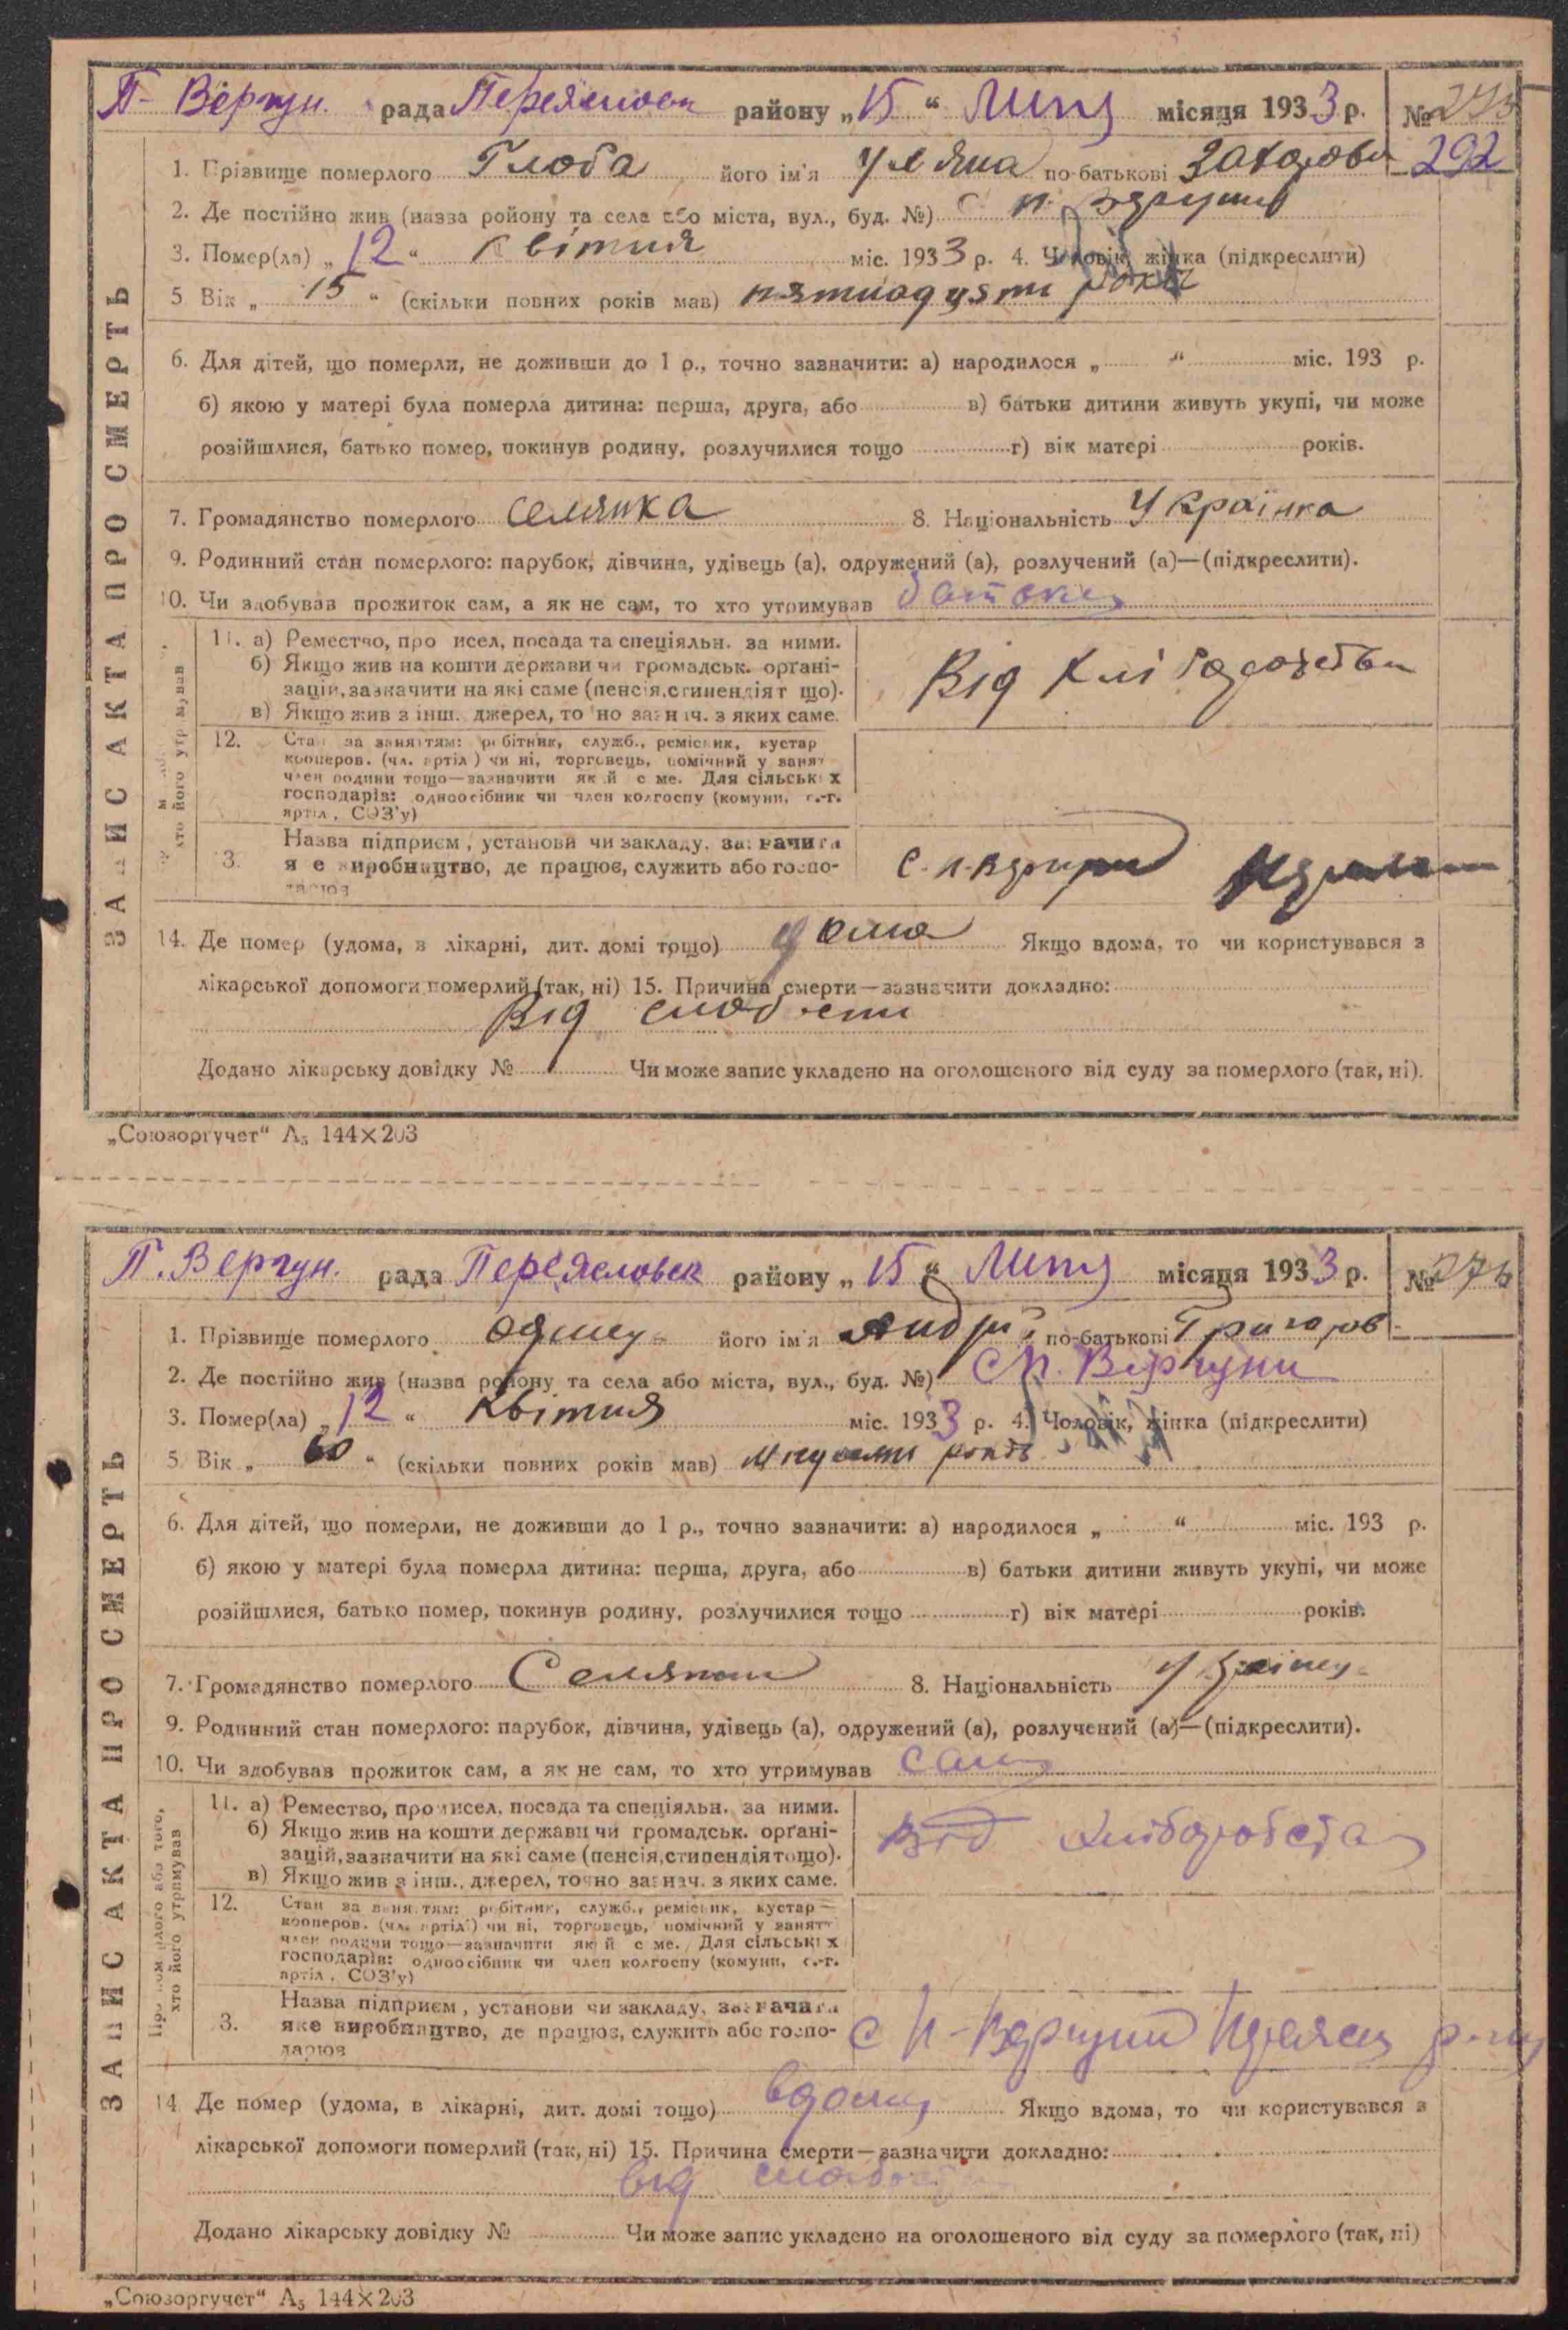 П- Вергун. рада Переяслоск району „15“ Липц місяця 1933 р. № 275
1. Прізвище померлого Глоба його ім'я Уляна по-батькові Захарова 292
2. Де постійно жив (назва ройону та села або міста, вул., буд. №) С п.
3. Помер(ла) „12“ Квітня міс. 1933 р. 4. Чоловік, жінка (підкреслити)
5 Вік „15“ (скільки повних років мав) пятнадцять
6. Для дітей, що померли, не доживши до 1 р., точно зазначити: а) народилося „ “ міс. 193 р.
б) якою у матері була померла дитина: перша, друга, або в) батьки дитини живуть укупі, чи може
розійшлися, батько помер, покинув родину, розлучилися тощо г) вік матері років.
7. Громадянство померлого селянка 8. Національність Українка
9. Родинний стан померлого: парубок, дівчина, удівець (а), одружений (а), розлучений (а)—(підкреслити).
10. Чи здобував прожиток сам, а як не сам, то хто утримував
11. а) Реместчо, про исел, посада та спеціяльн. за ними.
б) Якщо жив на кошти держави чи громадськ. органі-
зацій, зазначити на які саме (пенсія, стипендія т що).
в) Якщо жив з інш. джерел, то но зазн ч. з яких саме.
Від
12. Стан за заняттям: робітник, служб., ремісник, кустар
кооперов. (чл. артіл ) чи ні, торговець, помічний у занят
член родини тощо—зазначити як й с ме. Для сільськ х
господарів: одноосібник чи член колгоспу (комуни, с.-г.
артіл , СОЗ'у)
Назва підприєм , установи чи закладу, зазначити
3. я е виробництво, де працює, служить або госпо-
дарює
14. Де помер (удома, в лікарні, дит. домі тощо) дома Якщо вдома, то чи користувався з
лікарської допомоги померлий (так, ні) 15. Причина смерти—зазначити докладно:
Від слабости
Додано лікарську довідку № Чи може запис укладено на оголошеного від суду за померлого (так, ні).
ЗАПИС АКТА ПРО СМЕРТЬ
„Союзоргучет“ А₅ 144×203
П. Вергун. рада Переясловск району „15“ Липц місяця 1933 р. № 276
1. Прізвище померлого його ім'я Андрій по-батькові Григоров
2. Де постійно жив (назва ройону та села або міста, вул., буд. №) С П. Вергуни
3. Помер(ла) „12“ Квітня міс. 1933 р. 4. Чоловік, жінка (підкреслити)
5 Вік „60“ (скільки повних років мав)
6. Для дітей, що померли, не доживши до 1 р., точно зазначити: а) народилося „ “ міс. 193 р.
б) якою у матері була померла дитина: перша, друга, або в) батьки дитини живуть укупі, чи може
розійшлися, батько помер, покинув родину, розлучилися тощо г) вік матері років.
7. Громадянство померлого 8. Національність
9. Родинний стан померлого: парубок, дівчина, удівець (а), одружений (а), розлучений (а)—(підкреслити).
10. Чи здобував прожиток сам, а як не сам, то хто утримував сам
11. а) Ремество, про исел, посада та спеціяльн. за ними.
б) Якщо жив на кошти держави чи громадськ. органі-
зацій, зазначити на які саме (пенсія, стипендія тощо).
в) Якщо жив з інш. джерел, точно зазнач. з яких саме.
від
12. Стан за заняттям: робітник, служб., ремісник, кустар
кооперов. (чл. артіл ) чи ні, торговець, помічний у занятт
член родини тощо—зазначити як й с ме. Для сільськ х
господарів: одноосібник чи член колгоспу (комуни, с.-г.
артіл , СОЗ'у)
Назва підприєм , установи чи закладу, зазначити
3. яке виробництво, де працює, служить або госпо-
дарює
с П-Вергуни
14 Де помер (удома, в лікарні, дит. домі тощо) вдома Якщо вдома, то чи користувався з
лікарської допомоги померлий (так, ні) 15. Причина смерти—зазначити докладно:
від
Додано лікарську довідку № Чи може запис укладено на оголошеного від суду за померлого (так, ні)
ЗАПИС АКТА ПРО СМЕРТЬ
хто його утримував
„Союзоргучет“ А₅ 144×203